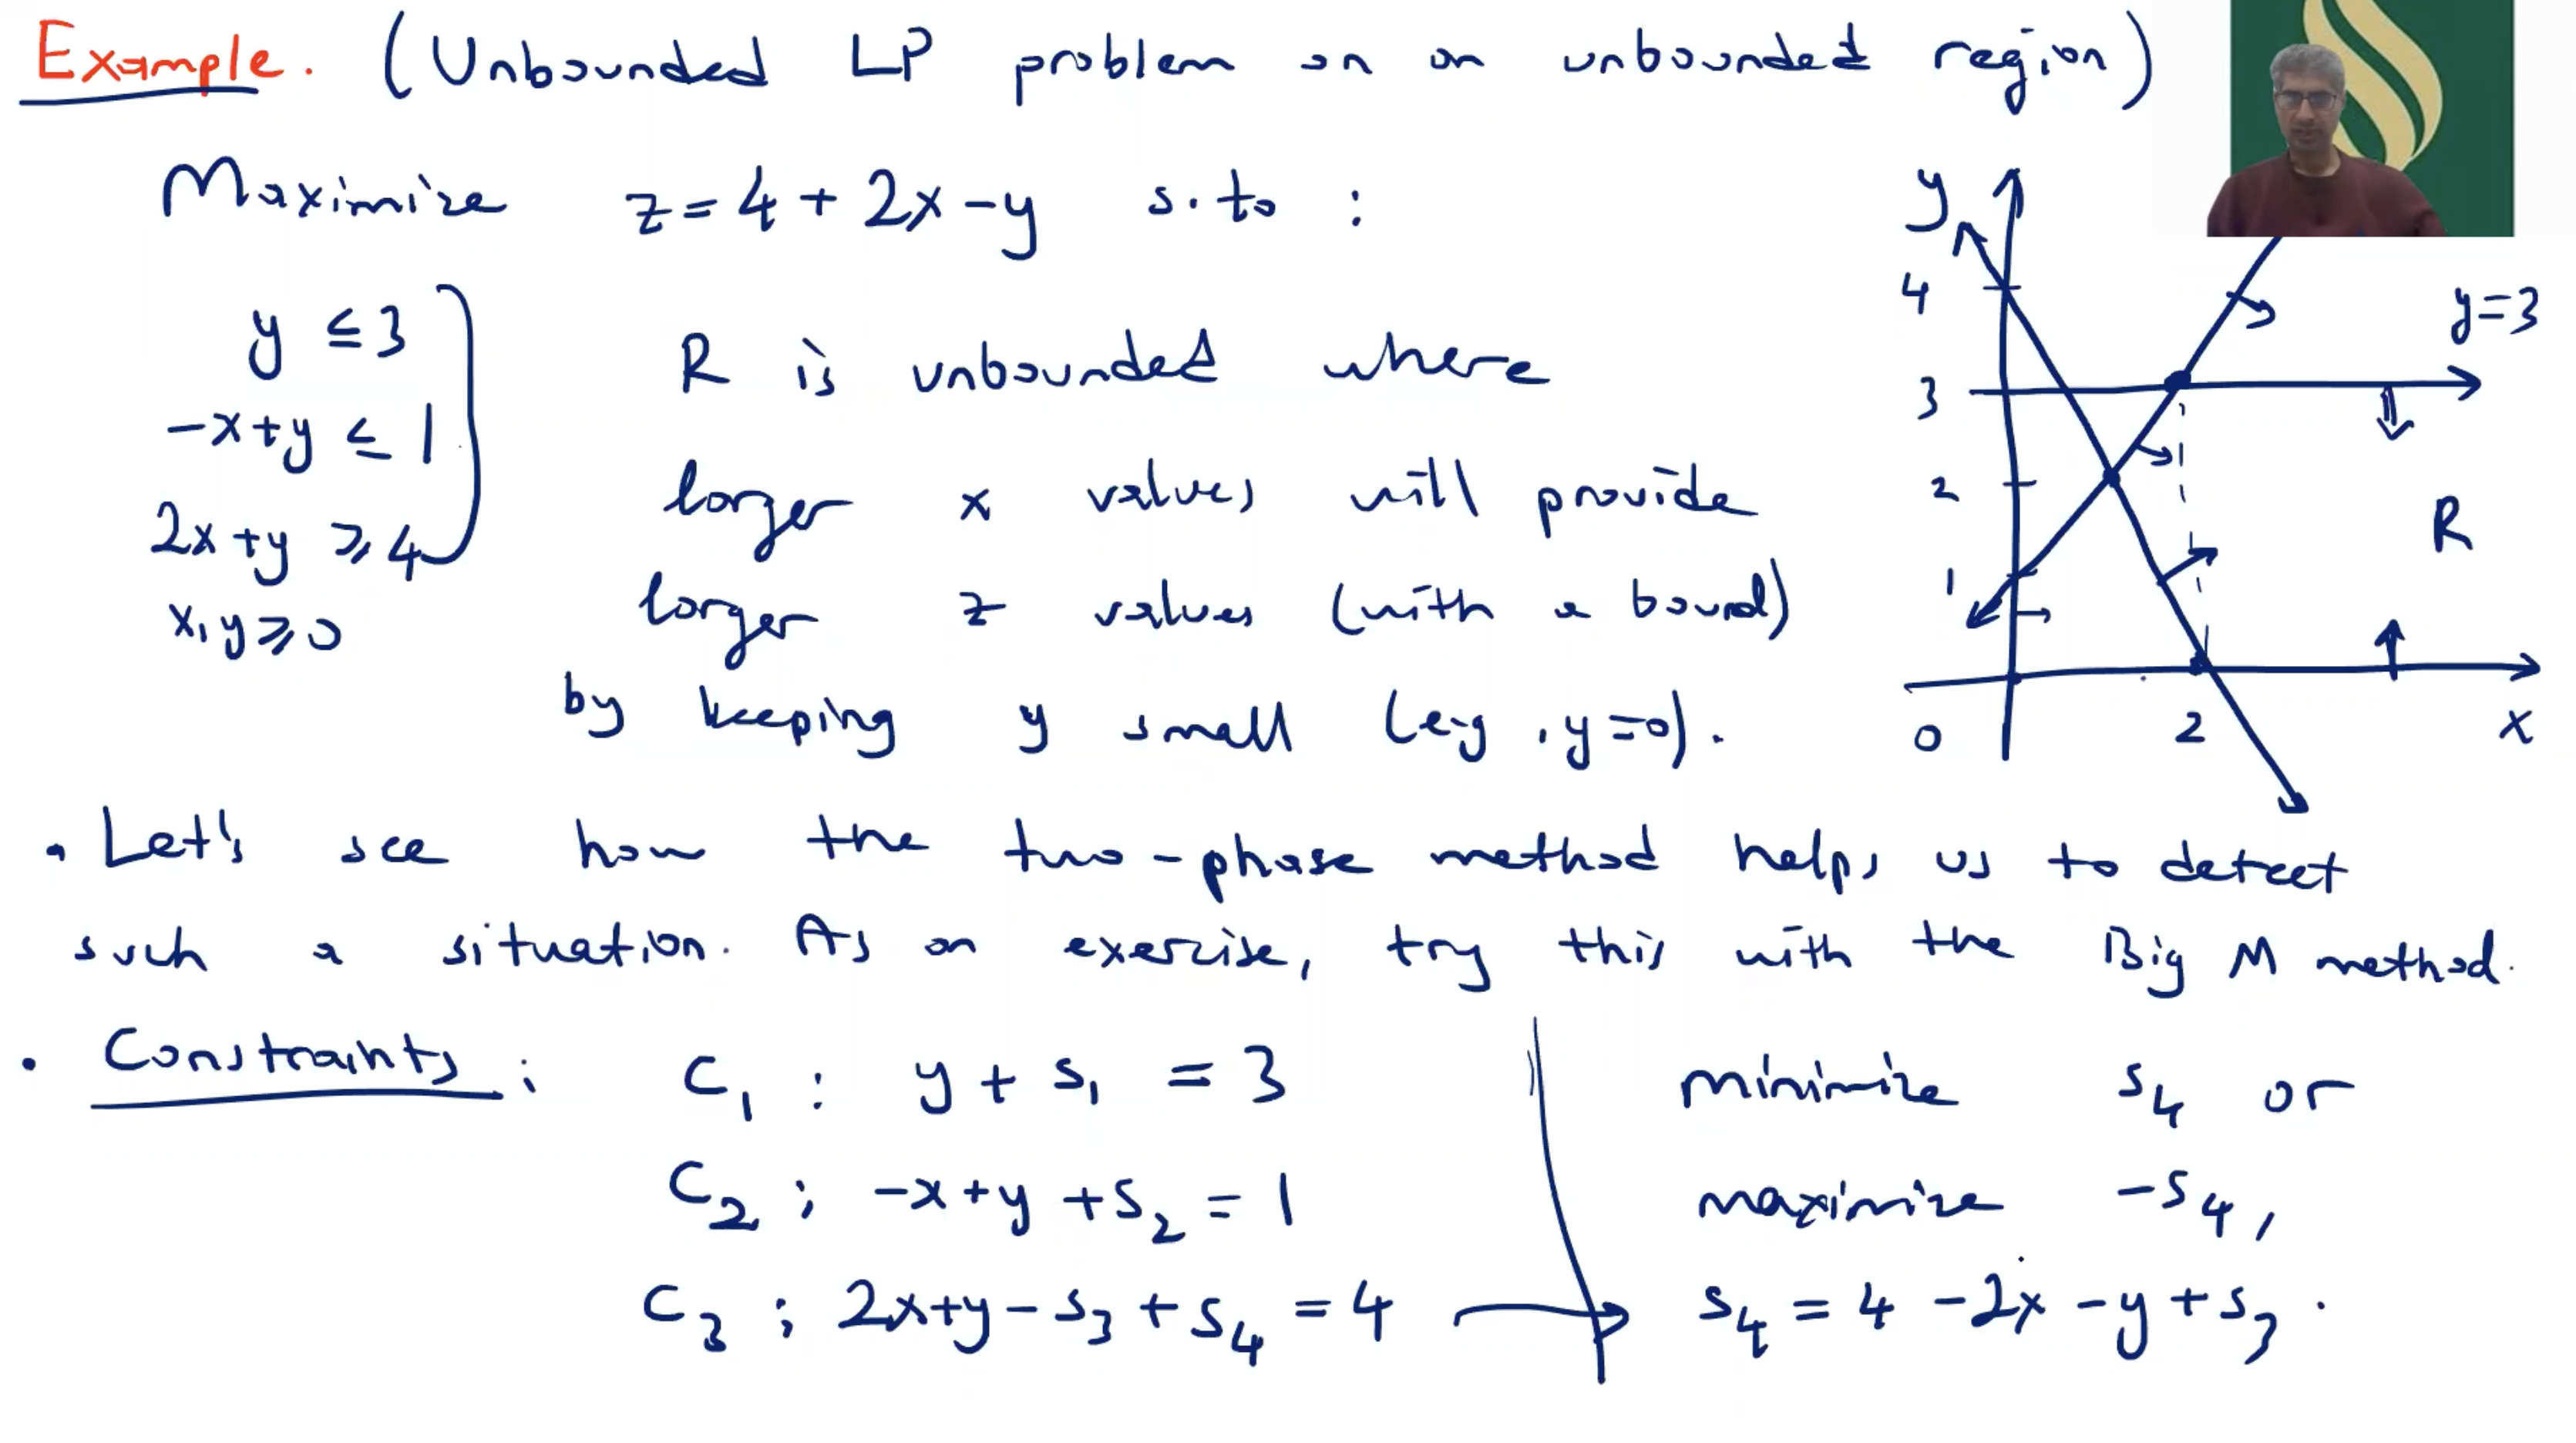 Example. (Unbounded LP problem on an unbounded region)
Maximize z = 4 + 2x - y s. to :
y ≤ 3
-x + y ≤ 1
2x + y ≥ 4
x, y ≥ 0
R is unbounded where
larger x values will provide
larger z values (with a bound)
by keeping y small (e.g , y = 0).
y
4
3
2
1
0
2
x
y = 3
R
• Let's see how the two-phase method helps us to detect
such a situation. As an exercise, try this with the Big M method.
• Constraints :
C₁ : y + s₁ = 3
C₂ : -x + y + s₂ = 1
C₃ : 2x + y - s₃ + s₄ = 4
minimize s₄ or
maximize -s₄,
s₄ = 4 - 2x - y + s₃.